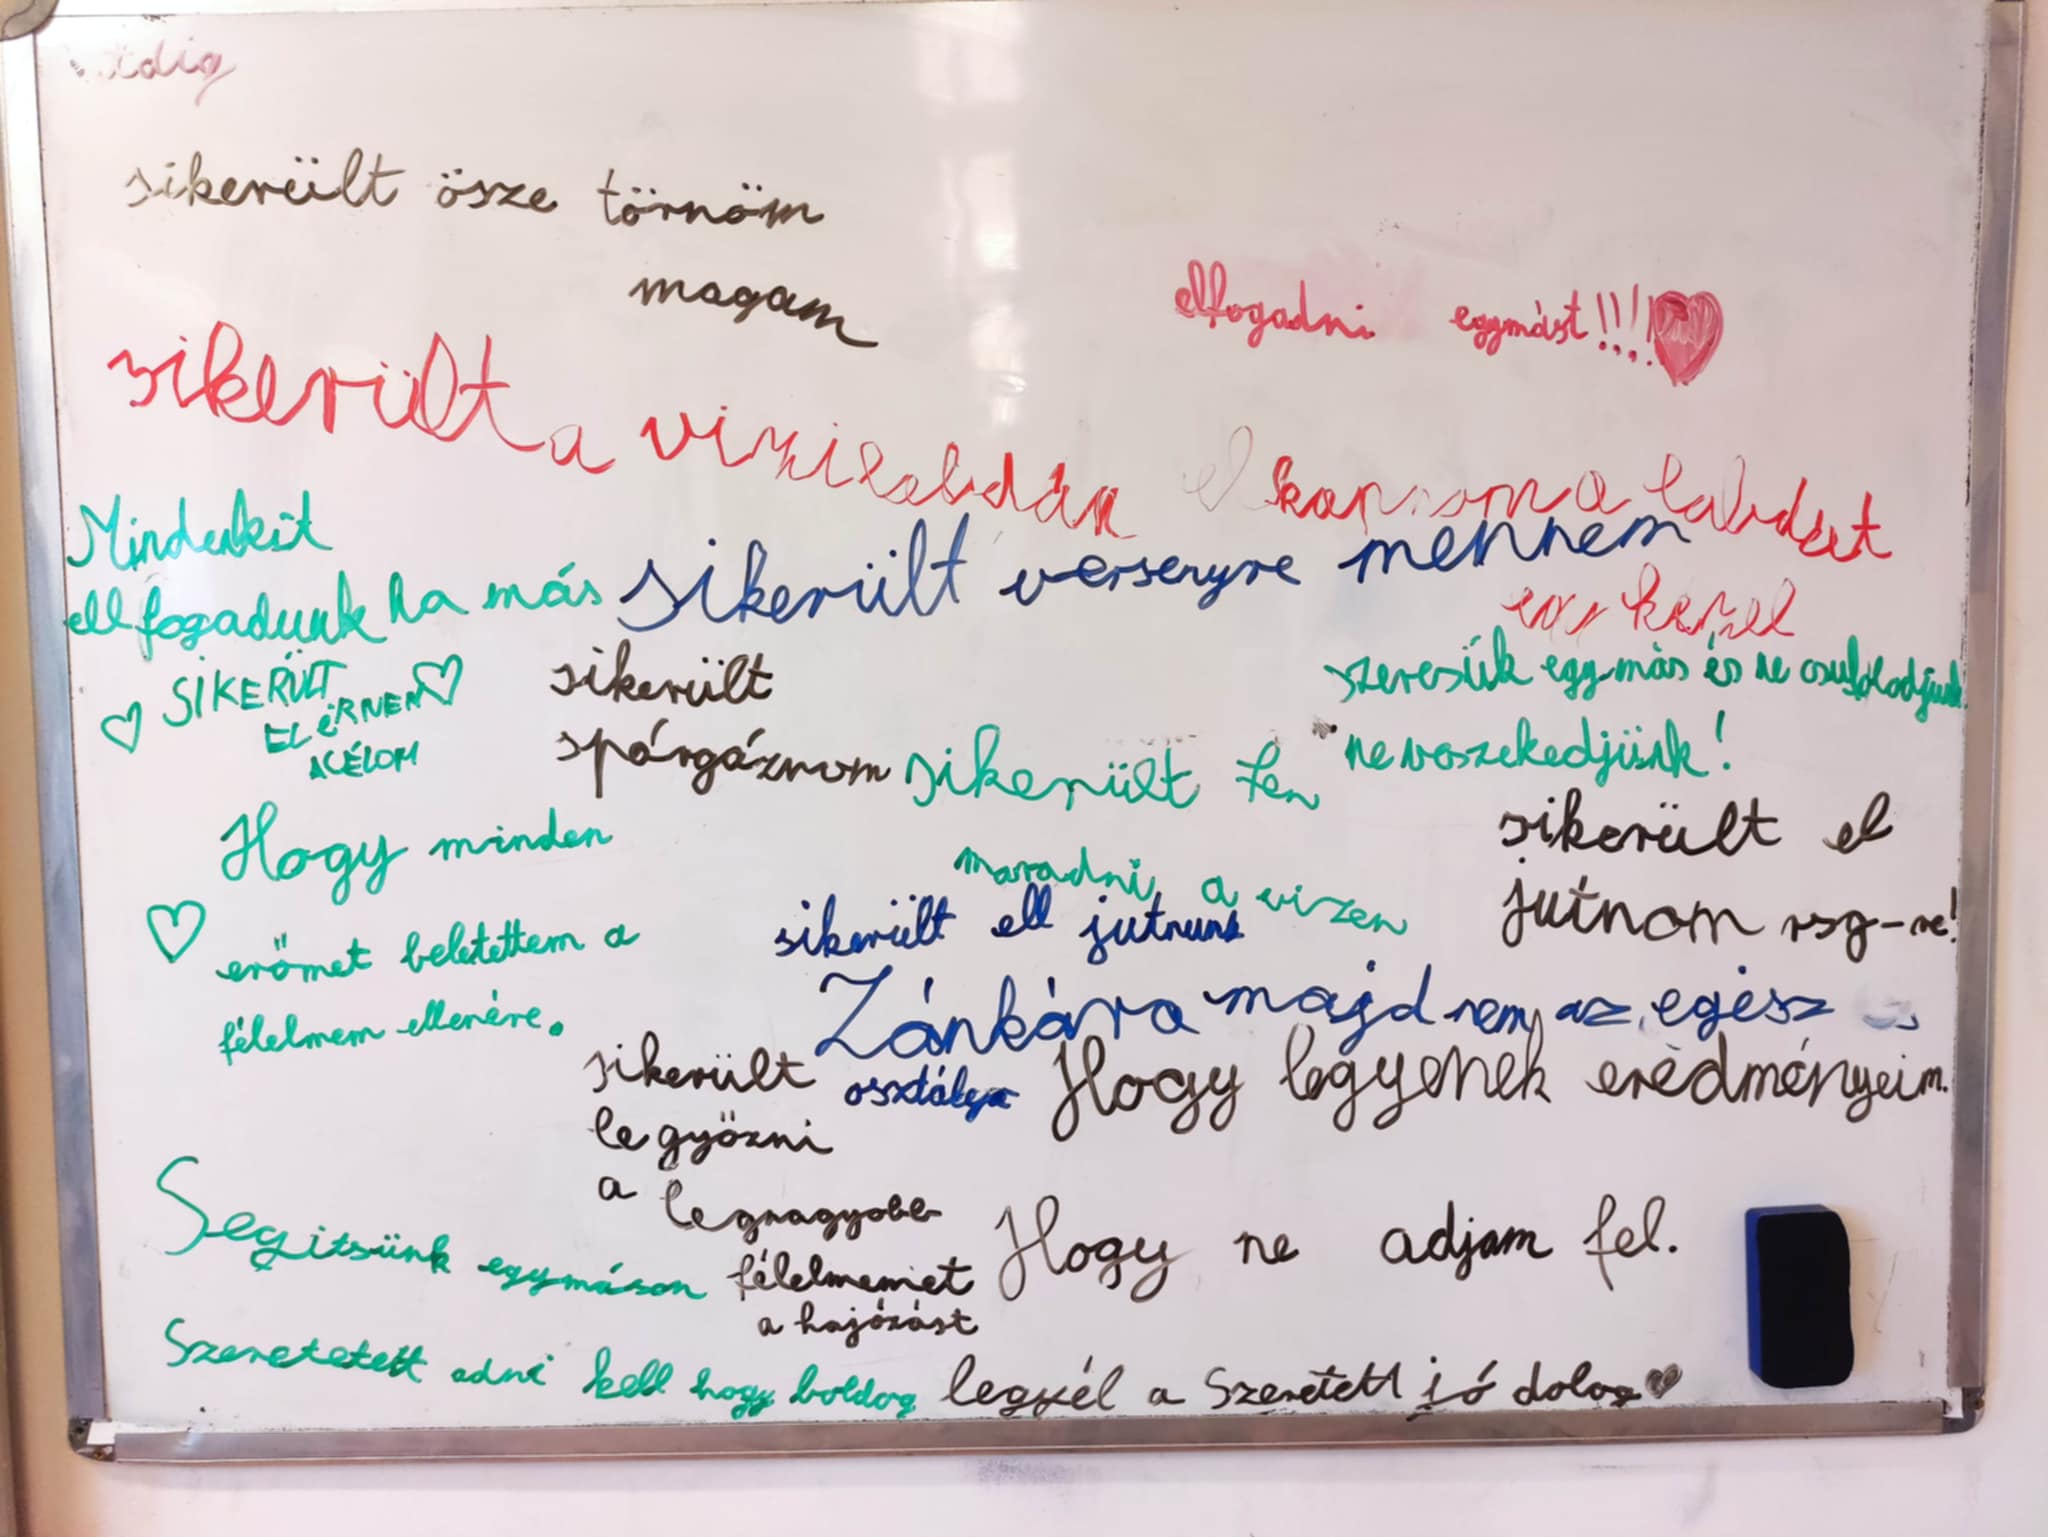 sikerült ösze törnöm
magam
elfogadni egymást!!!
sikerült a vizilabdán elkapnom a labdát
egy kézel
Mindenkit
ellfogadunk ha más
sikerült versenyre mennem
SIKERÜLT
ELÉRNEM
ACÉLOM
sikerült
spárgáznom
szeresük egymás és ne csufolodjunk
ne veszekedjünk!
sikerült fen
maradni a vizen
sikerült el
jutnom rsg-re!
Hogy minden
erőmet beletettem a
félelmem ellenére.
sikerült ell jutnunk
Zánkára majd nem az egész
osztálya
sikerült
le győzni
a legnagyobb
félelmemet
a hajózást
Hogy legyenek eredményeim.
Segitsünk egymáson
Hogy ne adjam fel.
Szeretetett adni kell hogy boldog legyél a Szeretett jó dolog